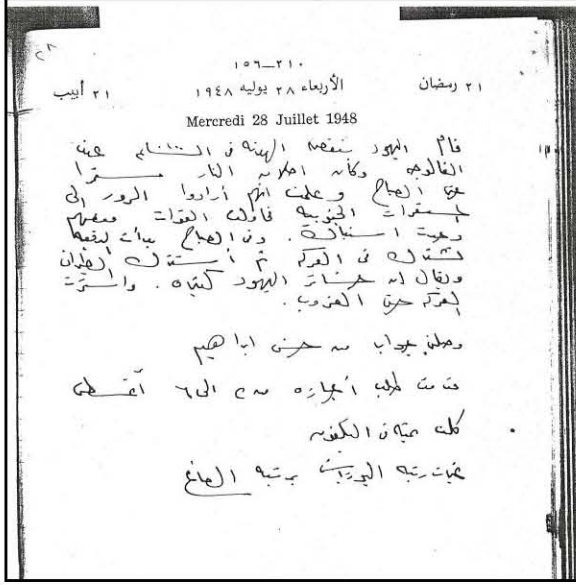 ٢١٠—١٥٦
٢١ رمضان الأربعاء ٢٨ يوليه ١٩٤٨ ٢١ أبيب
Mercredi 28 Juillet 1948
قام اليهود بنقض الهدنة فى الساعة عند
الفالوجه وكان اطلاق النار مستمرا
حتى الصباح وعلمت انهم أرادوا المرور الى
المستعمرات الجنوبيه فاولت القوات منعهم
وحدث اشتباك. وفى الصباح بدأت المدفعية
تشترك فى المعركه ثم اشترك الطيران
ويقال ان خسائر اليهود كثيره. واستمرت
المعركه حتى الغروب.
وصلنى جواب من حسن ابراهيم
قدمت طلب أجازه من ٢ الى ٦ أغسطس
كلمت فى التلفون
رتبه برتبه الصاغ